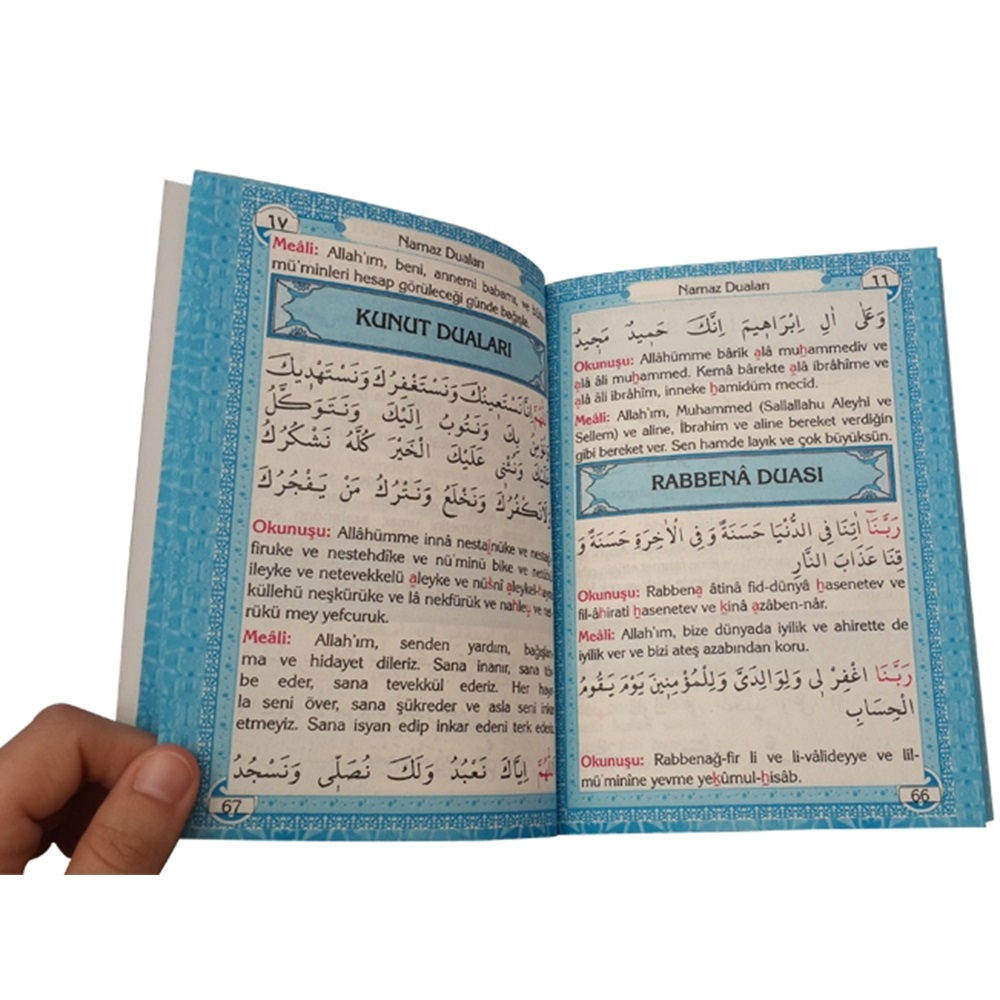 ٦٦
Namaz Duaları
وَعَلٰٓى اٰلِ اِبْرَاه۪يمَ اِنَّكَ حَم۪يدٌ مَج۪يدٌ
Okunuşu: Allâhümme bârik alâ muhammediv ve
alâ âli muhammed. Kemâ bârekte alâ ibrâhîme ve
alâ âli ibrâhîm, inneke hamidüm mecîd.
Meâli: Allah'ım, Muhammed (Sallallahu Aleyhi ve
Sellem) ve aline, İbrahim ve aline bereket verdiğin
gibi bereket ver. Sen hamde layık ve çok büyüksün.
RABBENÂ DUASI
رَبَّنَٓا اٰتِنَا فِي الدُّنْيَا حَسَنَةً وَفِي الْاٰخِرَةِ حَسَنَةً وَ
قِنَا عَذَابَ النَّارِ
Okunuşu: Rabbena âtinâ fid-dünyâ hasenetev ve
fil-âhirati hasenetev ve kinâ azâben-nâr.
Meâli: Allah'ım, bize dünyada iyilik ve ahirette de
iyilik ver ve bizi ateş azabından koru.
رَبَّنَا اغْفِرْ ل۪ي وَلِوَالِدَيَّ وَلِلْمُؤْمِن۪ينَ يَوْمَ يَقُومُ
الْحِسَابِ
Okunuşu: Rabbenağ-fir li ve li-vâlideyye ve lil-
mü'minîne yevme yekûmul-hisâb.
66
٦٧
Namaz Duaları
Meâli: Allah'ım, beni, annemi babamı, ve
mü'minleri hesap görüleceği günde bağışla.
KUNUT DUALARI
اِنَّا نَسْتَع۪ينُكَ وَنَسْتَغْفِرُكَ وَنَسْتَهْد۪يكَ
بِكَ وَنَتُوبُ اِلَيْكَ وَنَتَوَكَّلُ
عَلَيْكَ وَنُثْن۪ي عَلَيْكَ الْخَيْرَ كُلَّهُ نَشْكُرُكَ
وَلَا نَكْفُرُكَ وَنَخْلَعُ وَنَتْرُكُ مَنْ يَفْجُرُكَ
Okunuşu: Allâhümme innâ nestaînüke ve
firuke ve nestehdîke ve nü'minü bike ve
ileyke ve netevekkelü aleyke ve nüsnî
küllehü neşkürüke ve lâ nekfürük ve nahleu ve
rükü mey yefcuruk.
Meâli: Allah'ım, senden yardım,
ma ve hidayet dileriz. Sana inanır, sana
be eder, sana tevekkül ederiz. Her
la seni över, sana şükreder ve asla seni inkar
etmeyiz. Sana isyan edip inkar edeni terk ederiz.
اِيَّاكَ نَعْبُدُ وَلَكَ نُصَلّ۪ي وَنَسْجُدُ
67